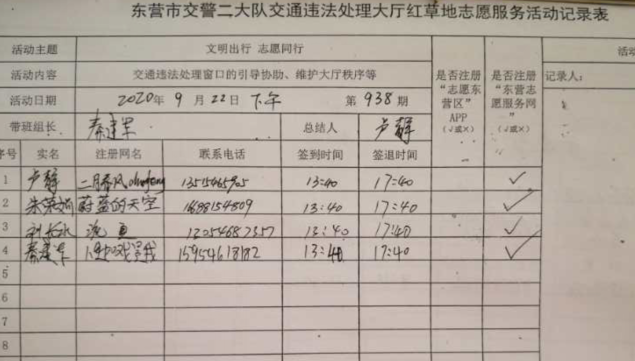 东营市交警二大队交通违法处理大厅红草地志愿服务活动记录表
活动主题 文明出行 志愿同行
活动内容 交通违法处理窗口的引导协助、维护大厅秩序等
活动日期 2020年9月22日下午 第938期
带班组长 秦建军 总结人 卢静
序号 实名 注册网名 联系电话 签到时间 签退时间 是否注册“志愿东营区”APP(√或×) 是否注册“东营志愿服务网”(√或×)
记录人:
1 卢静 二月春风 13:40 17:40 ✓
2 蔚蓝的天空 13:40 17:40 ✓
3 13:40 17:40 ✓
4 秦建军 15954618182 13:40 17:40 ✓
5
6
7
8